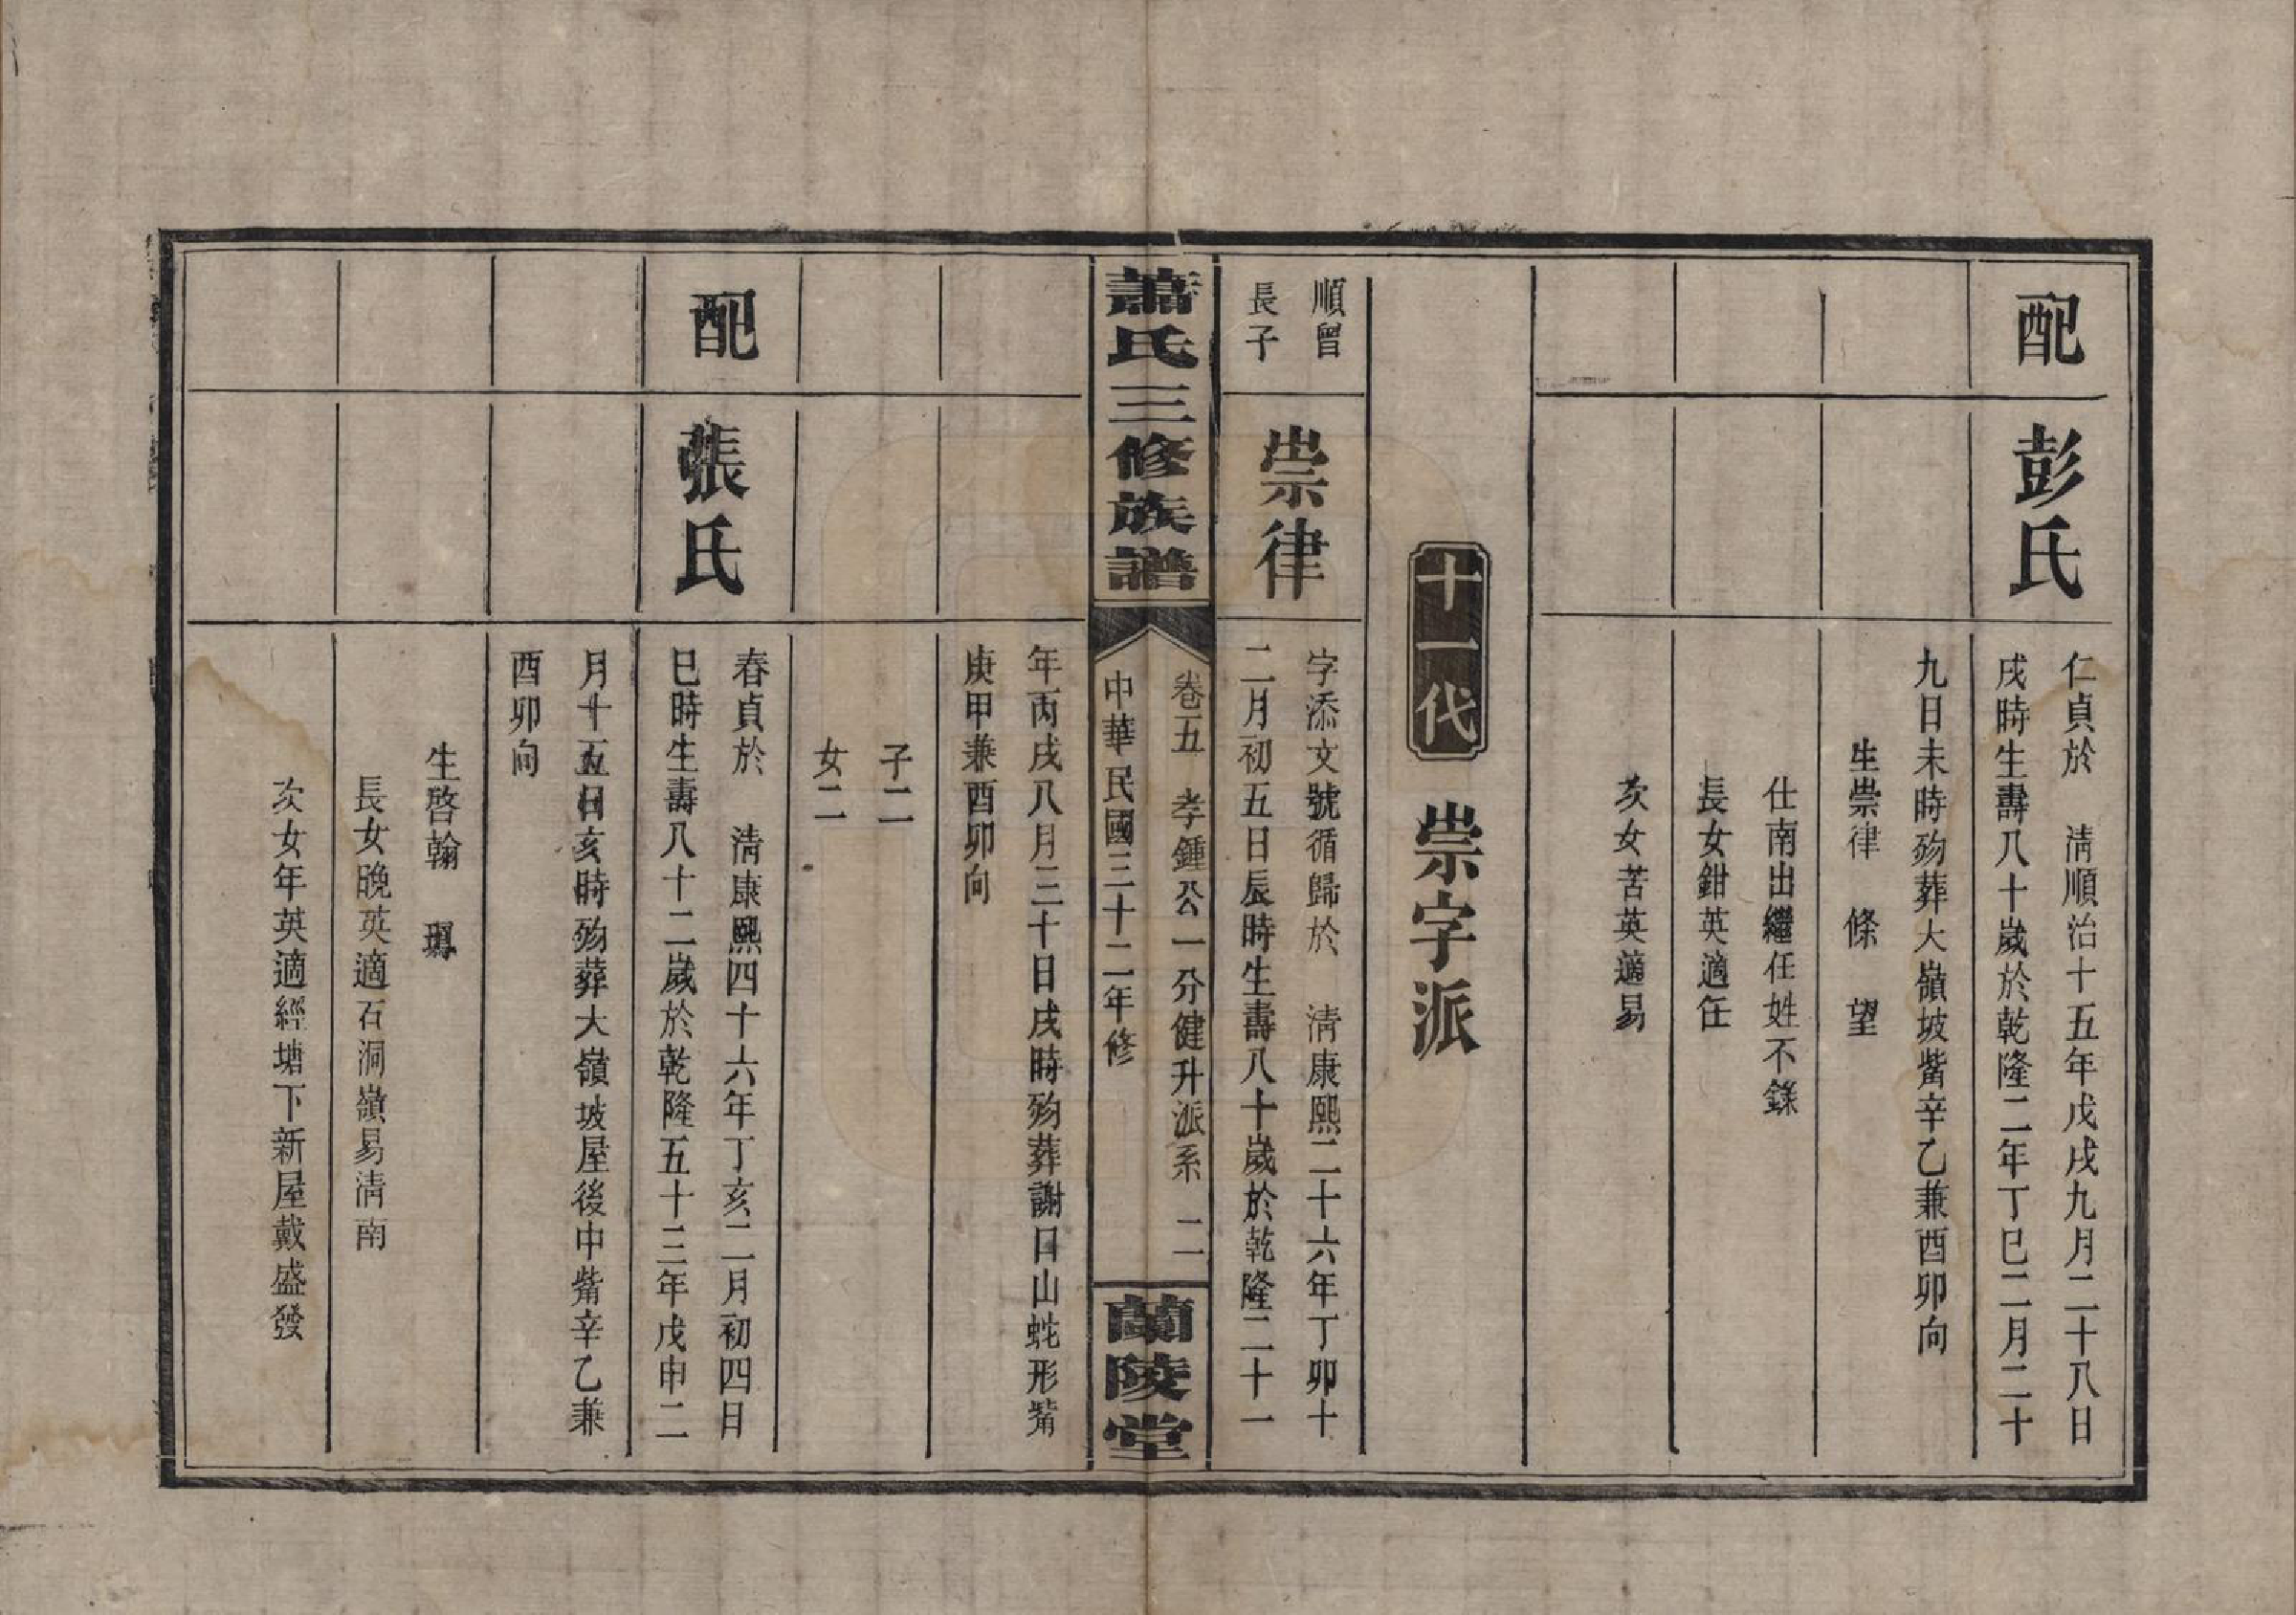 配
彭氏
仁貞於　清順治十五年戊戌九月二十八日
戌時生壽八十歲於乾隆二年丁巳二月二十
九日未時歿葬大嶺坡嘴辛乙兼酉卯向
生崇律　條　望
仕南出繼任姓不錄
長女鉗英適任
次女苦英適易
十一代
崇字派
順曾
長子
崇律
字添文號循歸於　清康熙二十六年丁卯十
二月初五日辰時生壽八十歲於乾隆二十一
蕭氏三修族譜
卷五　孝鍾公一分健升派系　二
中華民國三十二年修
蘭陵堂
年丙戌八月三十日戌時歿葬謝口山虵形嘴
庚甲兼酉卯向
子二
女二
配
張氏
春貞於　清康熙四十六年丁亥二月初四日
巳時生壽八十二歲於乾隆五十三年戊申二
月十五日亥時歿葬大嶺坡屋後中嘴辛乙兼
酉卯向
生啓翰
長女晚英適石洞嶺易清南
次女年英適經塘下新屋戴盛發